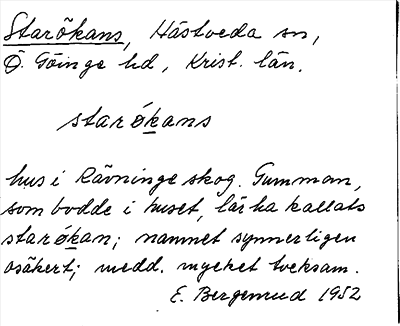 Starökans, Hästveda sn,
Ö. Göinge hd, Krist. län.
starǿkans
hus i Rävninge skog. Gumman,
som bodde i huset, lär ha kallats
starǿkan; namnet synnerligen
osäkert; medd. mycket tveksam.
E. Bergenrud 1952